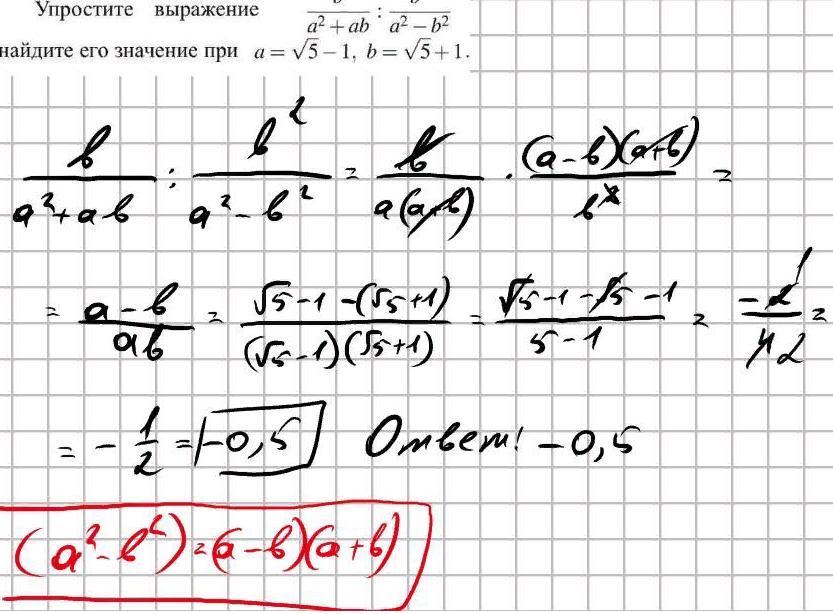 Упростите выражение a² + ab : a² − b²
найдите его значение при a = √5 − 1, b = √5 + 1.
b/(a² + ab) : b²/(a² − b²) = b/(a(a+b)) · (a−b)(a+b)/b² =
= (a−b)/(ab) = (√5−1−(√5+1))/((√5−1)(√5+1)) = (√5−1−√5−1)/(5−1) = −2/4 2 =
= −1/2 = −0,5 Ответ: −0,5
(a² − b²) = (a−b)(a+b)